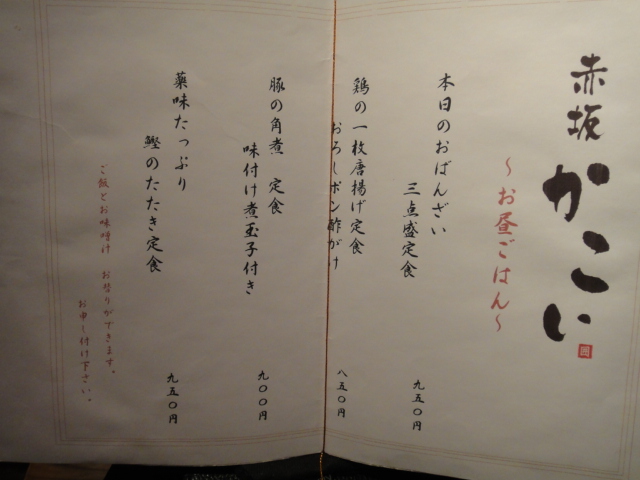 赤坂 かこい
～お昼ごはん～
本日のおばんざい
三点盛定食
九五〇円
鶏の一枚唐揚げ定食
おろしポン酢がけ
八五〇円
豚の角煮 定食
味付け煮玉子付き
九〇〇円
薬味たっぷり
鰹のたたき定食
九五〇円
ご飯とお味噌汁 お替りができます。
お申し付け下さい。